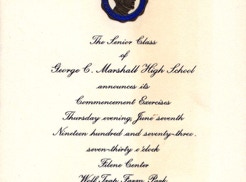 The Senior Class
of
George C. Marshall High School
announces its
Commencement Exercises
Thursday evening, June seventh
Nineteen hundred and seventy-three.
seven-thirty o'clock
Filene Center
Wolf Trap Farm Park